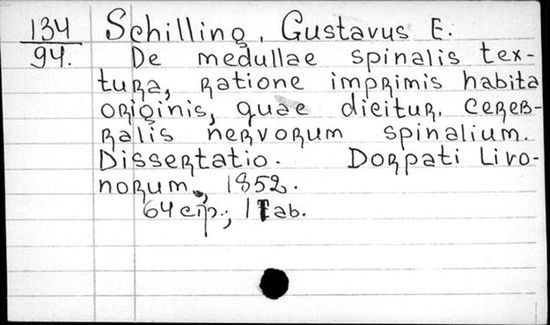 134 Schilling, Gustavus E.
94. De medullae spinalis tex-
tura, ratione imprimis habita
originis, quae dicitur, cereb-
ralis nervorum spinalium.
Dissertatio. Dorpati Livo-
norum, 1852.
64 стр.; 1 Tab.